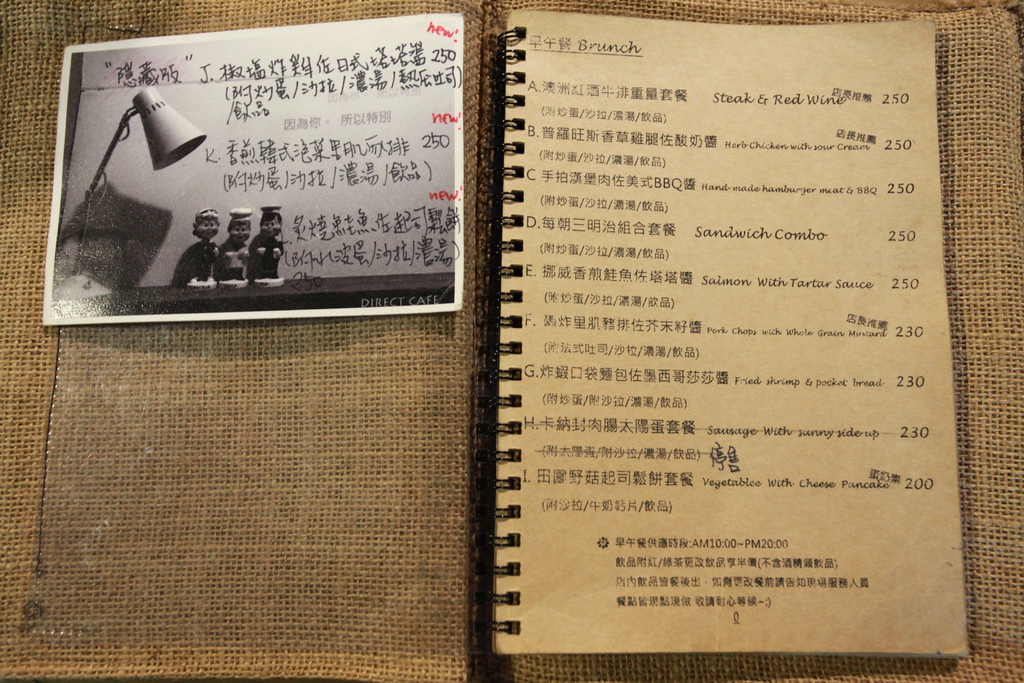 new!
"隱藏版" J. 椒塩炸雞佐日式塔塔醬 250
(附炒蛋/沙拉/濃湯/熱瓜吐司)
飲品
因為你。所以特別
new!
K. 香煎韓式泡菜里肌肉排 250
(附炒蛋/沙拉/濃湯/飲品)
new!
炙燒鮭魚佐起司鬆餅
(附水波蛋/沙拉/濃湯)
250
DIRECT CAFE
早午餐 Brunch
A.澳洲紅酒牛排重量套餐 Steak & Red Wine 店長推薦 250
(附炒蛋/沙拉/濃湯/飲品)
B.普羅旺斯香草雞腿佐酸奶醬 Herb Chicken with sour Cream 店長推薦 250
(附炒蛋/沙拉/濃湯/飲品)
C 手拍漢堡肉佐美式BBQ醬 Hand-made hamburger meat & BBQ 250
(附炒蛋/沙拉/濃湯/飲品)
D.每朝三明治組合套餐 Sandwich Combo 250
(附炒蛋/沙拉/濃湯/飲品)
E. 挪威香煎鮭魚佐塔塔醬 Salmon With Tartar Sauce 250
(附炒蛋/沙拉/濃湯/飲品)
F. 酥炸里肌豬排佐芥末籽醬 Pork Chops with Whole Grain Mustard 店長推薦 230
(附法式吐司/沙拉/濃湯/飲品)
G.炸蝦口袋麵包佐墨西哥莎莎醬 Fried shrimp & pocket bread 230
(附炒蛋/附沙拉/濃湯/飲品)
H.卡納封肉腸太陽蛋套餐 Sausage With sunny side up 230
(附太陽蛋/附沙拉/濃湯/飲品) 停售
I. 田園野菇起司鬆餅套餐 Vegetablee With Cheese Pancake 蛋奶素 200
(附沙拉/牛奶鈣片/飲品)
早午餐供應時段:AM10:00~PM20:00
飲品附紅/綠茶更改飲品享半價(不含酒精類飲品)
店內飲品皆餐後出，如需更改餐前請告知現場服務人員
餐點皆現點現做 敬請耐心等候~:)